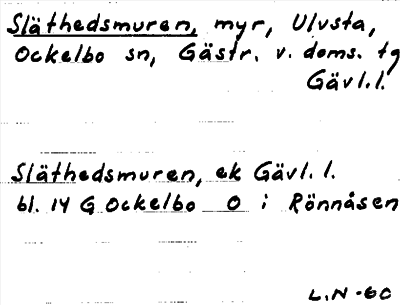 Släthedsmuren, myr, Ulvsta,
Ockelbo sn, Gästr. v. doms. tg
Gävl.l.
Släthedsmuren, ek Gävl. l.
bl. 14 G Ockelbo O i Rönnåsen
L.N -60